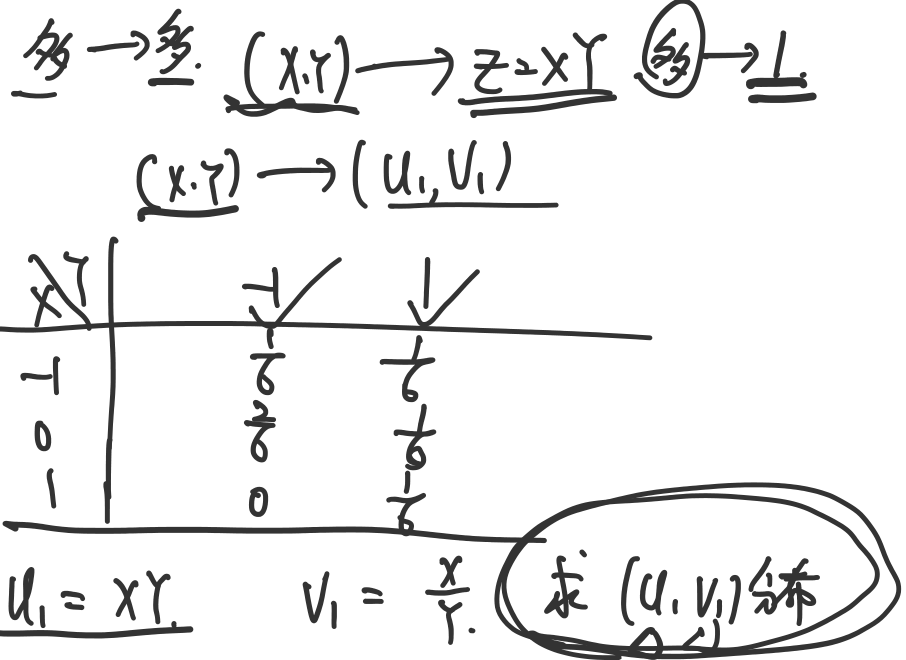 多→多. (X,Y)→Z=XY 多→1.
(X.Y)→(U₁,V₁)
X\Y -1 1
-1 1/6 1/6
0 2/6 1/6
1 0 1/6
U₁=XY. V₁=X/Y. 求(U₁,V₁)分布